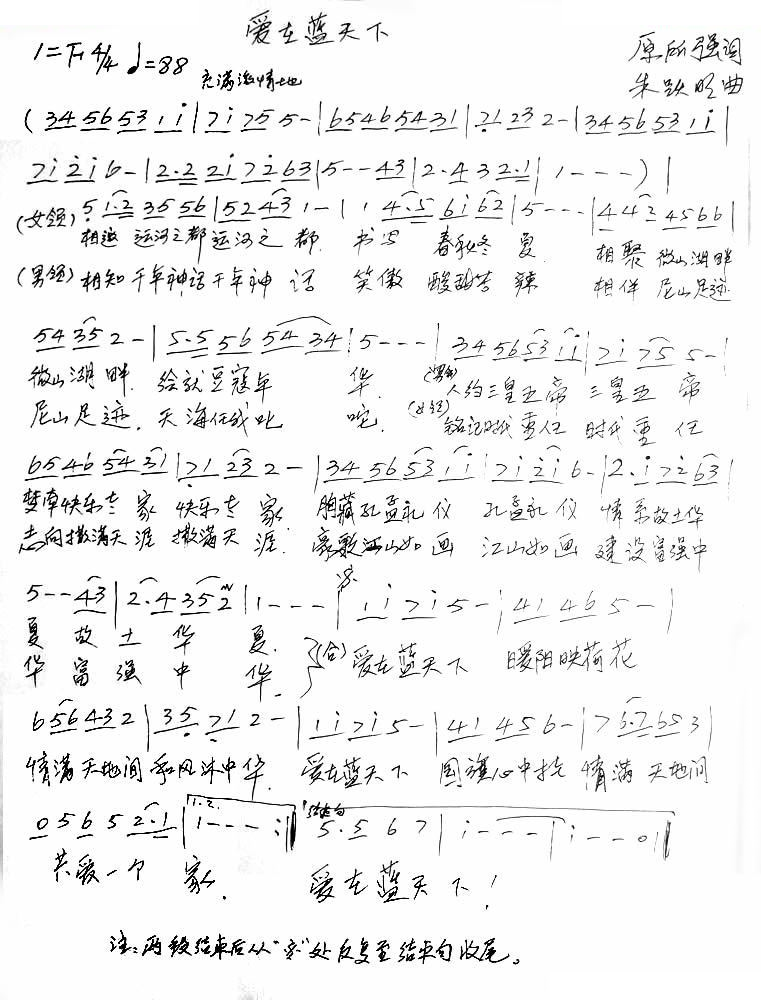 爱在蓝天下
1=F 4/4 ♩=88
充满激情地
原所强词
朱跃明曲
( 34 56 53 1i | 7i 75 5- | 65 46 54 31 | 71 23 2- | 34 56 53 1i |
7i 2i 6- | 2·2 2i 72 63 | 5--43 | 2·4 3 2·1 | 1--- ) |
(女领) 5 1·2 35 56 | 52 43 1- | 1 4·5 6i 62 | 5--- | 4 42 45 66 |
相邀 运河之都 运河之 都. 书写 春秋冬 夏. 相聚 微山湖畔
(男领) 相知 千年神话 千年神 话 笑傲 酸甜苦 辣 相伴 尼山足迹
54 35 2- | 5·5 56 54 34 | 5--- | 34 56 53 1i | 7i 75 5- |
微山湖 畔. 绘就豆寇年 华. (男领) 人约三皇五帝 三皇五 帝
尼山足 迹. 天海任我叱 咤. (女领) 铭记时代重任 时代重 任
65 46 54 31 | 71 23 2- | 34 56 53 1i | 7i 2i 6- | 2·i 72 63 |
梦牵快乐老 家 快乐老 家. 胸藏孔孟礼 仪 孔孟礼 仪 情系故土华
志向撒满天 涯 撒满天 涯. 豪歌江山如 画 江山如画 建设富强中
5--43 | 2·4 35 2 | 1--- | 1i 7i 5- | 41 46 5- |
夏 故 土 华 夏.
华 富 强 中 华.
(合) 爱在蓝天下 暖阳映荷花
6 56 43 2 | 35 71 2- | 1i 7i 5- | 41 45 6- | 7 6·7 65 3 |
情满 天地间 和风沐中华. 爱在蓝天下 国旗心中挂 情满 天地间
0 5 6 5 2·1 | 1.2. 1--- :‖ 结束句 5·5 6 7 | i--- | i--0 ‖
共爱一个 家. 爱在蓝天下!
注:两段结束后从"𝄋"处反复至结束句收尾。